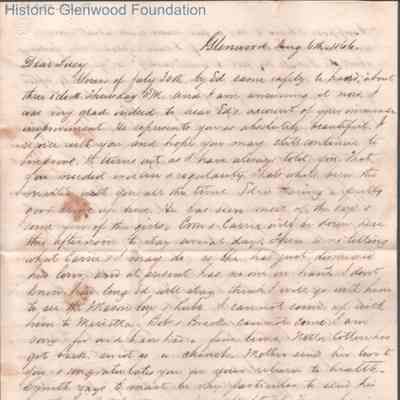 Historic Glenwood Foundation
Glenwood Aug 6th, 1866.
Dear Lucy
Yours of July 30th by Ed came safely to hand, about
three o'clock Thursday P.M. and I am answering it now. I
was very glad indeed to hear Ed's account of your immense
improvement. He represents you as absolutely beautiful. I
rejoice with you and hope you may still continue to
improve. It turns out as I have always told you, that
you needed and regularity. That's what been the
matter with you all the time. Ed is having a pretty
good time up here. He has seen most of the boys &
some few of the girls. Com & Carrie will be down here
this afternoon to stay several days. There is no telling
what Carrie & I may do as she has just
and at present has no one on hand. I don't
know how long Ed will stay. I think I will go with him
to see the Mason boy & I cannot come up with
him to Marietta. Bob cannot come. I am
sorry for we'd have had a fine time. has
got back, but not as a church. Mother sends her love to
you & congratulates you on your return to health.
says to must be very particular to send his